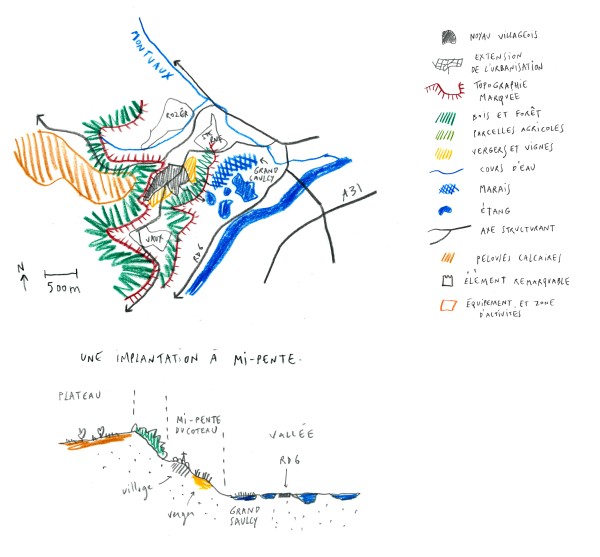 MONTVAUX
ROZÉR
STE
RUF
GRAND
SAULLY
VAUX
RD6
A31
N
500m
NOYAU VILLAGEOIS
EXTENSION
DE L'URBANISATION
TOPOGRAPHIE
MARQUÉE
BOIS ET FORÊT
PARCELLES AGRICOLES
VERGERS ET VIGNES
COURS D'EAU
MARAIS
ÉTANG
AXE STRUCTURANT
PELOUSES CALCAIRES
ÉLÉMENT REMARQUABLE
ÉQUIPEMENT ET ZONE
D'ACTIVITÉS
UNE IMPLANTATION À MI-PENTE.
PLATEAU
MI-PENTE
DU COTEAU
VALLÉE
RD6
village
verger
GRAND
SAULLY